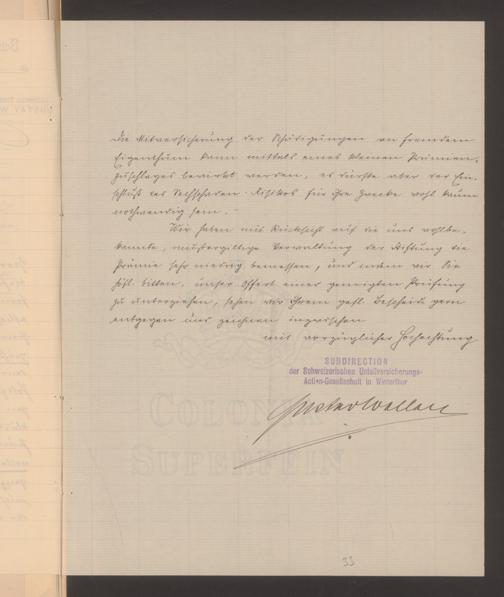 die Mitversicherung der Schädigungen an fremdem
Eigenthum kann mittels eines kleinen Prämien-
zuschlages bewirkt werden, es dürfte aber der Ein-
schluß des Sachschaden-Risikos für Ihre Zwecke wohl kaum
nothwendig sein. -
Wir haben mit Rücksicht auf die uns wohlbe-
kannte, mustergiltige Verwaltung der Stiftung die
Prämie sehr niedrig bemessen, und indem wir Sie
höfl. bitten, unsere Offert einer geneigten Prüfung
zu unterziehen, sehen wir Ihrem gefl. Bescheide gern
entgegen und zeichnen inzwischen
mit vorzüglicher Hochachtung
SUBDIRECTION
der Schweizerischen Unfallversicherungs-
Actien-Gesellschaft in Winterthur
COLONIA
SUPERFEIN
33